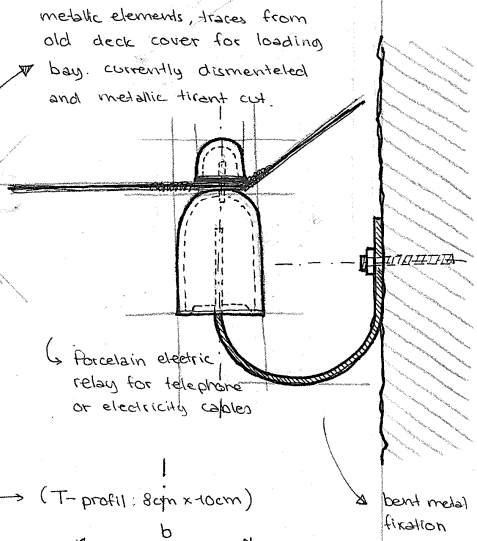 metallic elements, traces from
old deck cover for loading
bay. currently dismenteled
and metallic tirant cut.
Porcelain electric
relay for telephone
or electricity cables
(T-profil: 8cm x 10cm)
b
bent metal
fixation